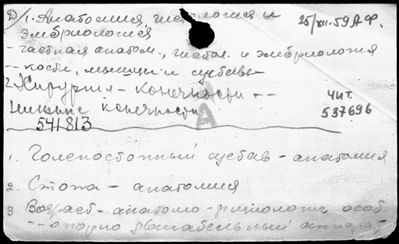 D/1. Анатомия, гистология и
эмбриология
- частная анатом., гистол. и эмбриология
-- кости, мышцы и суставы
25/XII.59 А.Ф.
2. Хирургия - конечности --
Нижние конечности
чит.
537696
541813
А
1. Голеностопный сустав - анатомия
2. Стопа - анатомия
3 Возраст - анатомо-физиолог. особ.
-- опорно двигательный аппарат